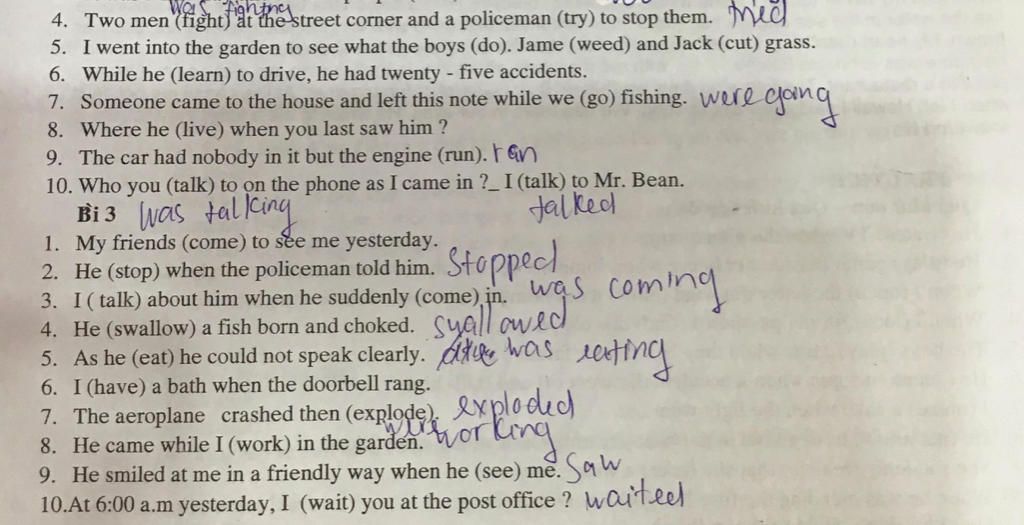 was fighting
4. Two men (fight) at the street corner and a policeman (try) to stop them. tried
5. I went into the garden to see what the boys (do). Jame (weed) and Jack (cut) grass.
6. While he (learn) to drive, he had twenty - five accidents.
7. Someone came to the house and left this note while we (go) fishing. were going
8. Where he (live) when you last saw him ?
9. The car had nobody in it but the engine (run). ran
10. Who you (talk) to on the phone as I came in ?_ I (talk) to Mr. Bean.
Bi 3 was talking talked
1. My friends (come) to see me yesterday.
2. He (stop) when the policeman told him. Stopped
3. I ( talk) about him when he suddenly (come) in. was coming
4. He (swallow) a fish born and choked. syallowed
5. As he (eat) he could not speak clearly. was eating
6. I (have) a bath when the doorbell rang.
7. The aeroplane crashed then (explode). exploded
8. He came while I (work) in the garden. were working
9. He smiled at me in a friendly way when he (see) me. Saw
10.At 6:00 a.m yesterday, I (wait) you at the post office ? waited